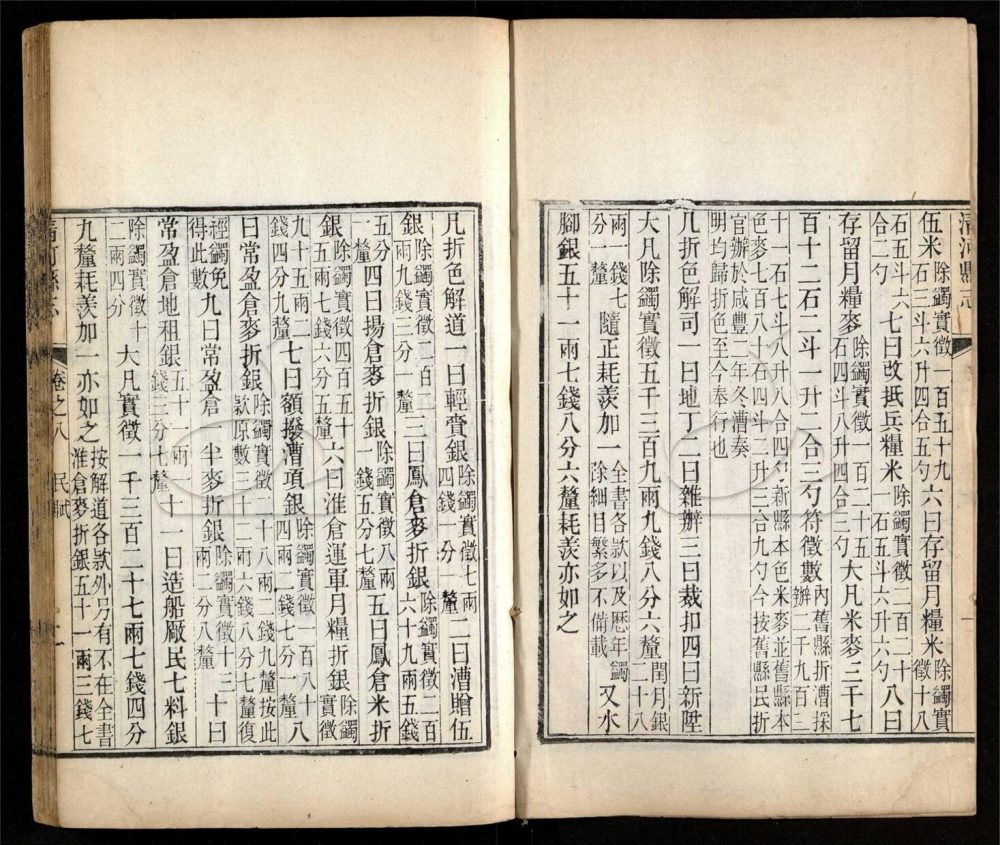 清河縣志
伍米除蠲實徵一百五十九石三斗六升四合五勺六曰存留月糧米除蠲實徵十八
石五斗六合二勺七曰改抵兵糧米除蠲實徵二百二十一石五斗六升六勺八曰
存留月糧麥除蠲實徵一百二十五石四斗八升四合三勺大凡米麥三千七
百十二石二斗一升二合三勺符徵數內舊縣折漕採辦二千九百三
十一石七斗八升八合四勺新縣本色米麥並舊縣本色麥七百八十石四斗二升三合九勺今按舊縣民折
官辦於咸豐二年冬漕奏明均歸折色至今奉行也
凡折色解司一曰地丁二曰雜辦三曰裁扣四曰新陞
大凡除蠲實徵五千三百九兩九錢八分六釐閏月銀二十八
兩一錢七分一釐隨正耗羨加一全書各款以及歷年蠲除細目繁多不備載又水
腳銀五十一兩七錢八分六釐耗羨亦如之
凡折色解道一曰輕賫銀除蠲實徵七兩四錢一分一釐二曰漕贈伍
銀除蠲實徵二百兩九錢三分一釐三曰鳳倉麥折銀除蠲實徵二百六十九兩五錢
五分一釐四曰揚倉麥折銀除蠲實徵八兩一錢五分七釐五曰鳳倉米折
銀除蠲實徵四百五十五兩七錢六分五釐六曰淮倉運軍月糧折銀除蠲實徵
九十五兩二錢四分九釐七曰額撥漕項銀除蠲實徵一百八十四兩二錢七分一釐八
曰常盈倉麥折銀除蠲實徵二十八兩二錢九釐按此款原數三十二兩六錢八分七釐復
經蠲免得此數九曰常盈倉一尖麥折銀除蠲實徵十三兩二分八釐十曰
常盈倉地租銀五十一兩一錢三分七釐十一曰造船厰民七料銀
除蠲實徵十二兩四分大凡實徵一千三百二十七兩七錢四分
九釐耗羨加一亦如之按解道各款外另有不在全書淮倉麥折銀五十一兩三錢七
清河縣志 卷之八 民賦